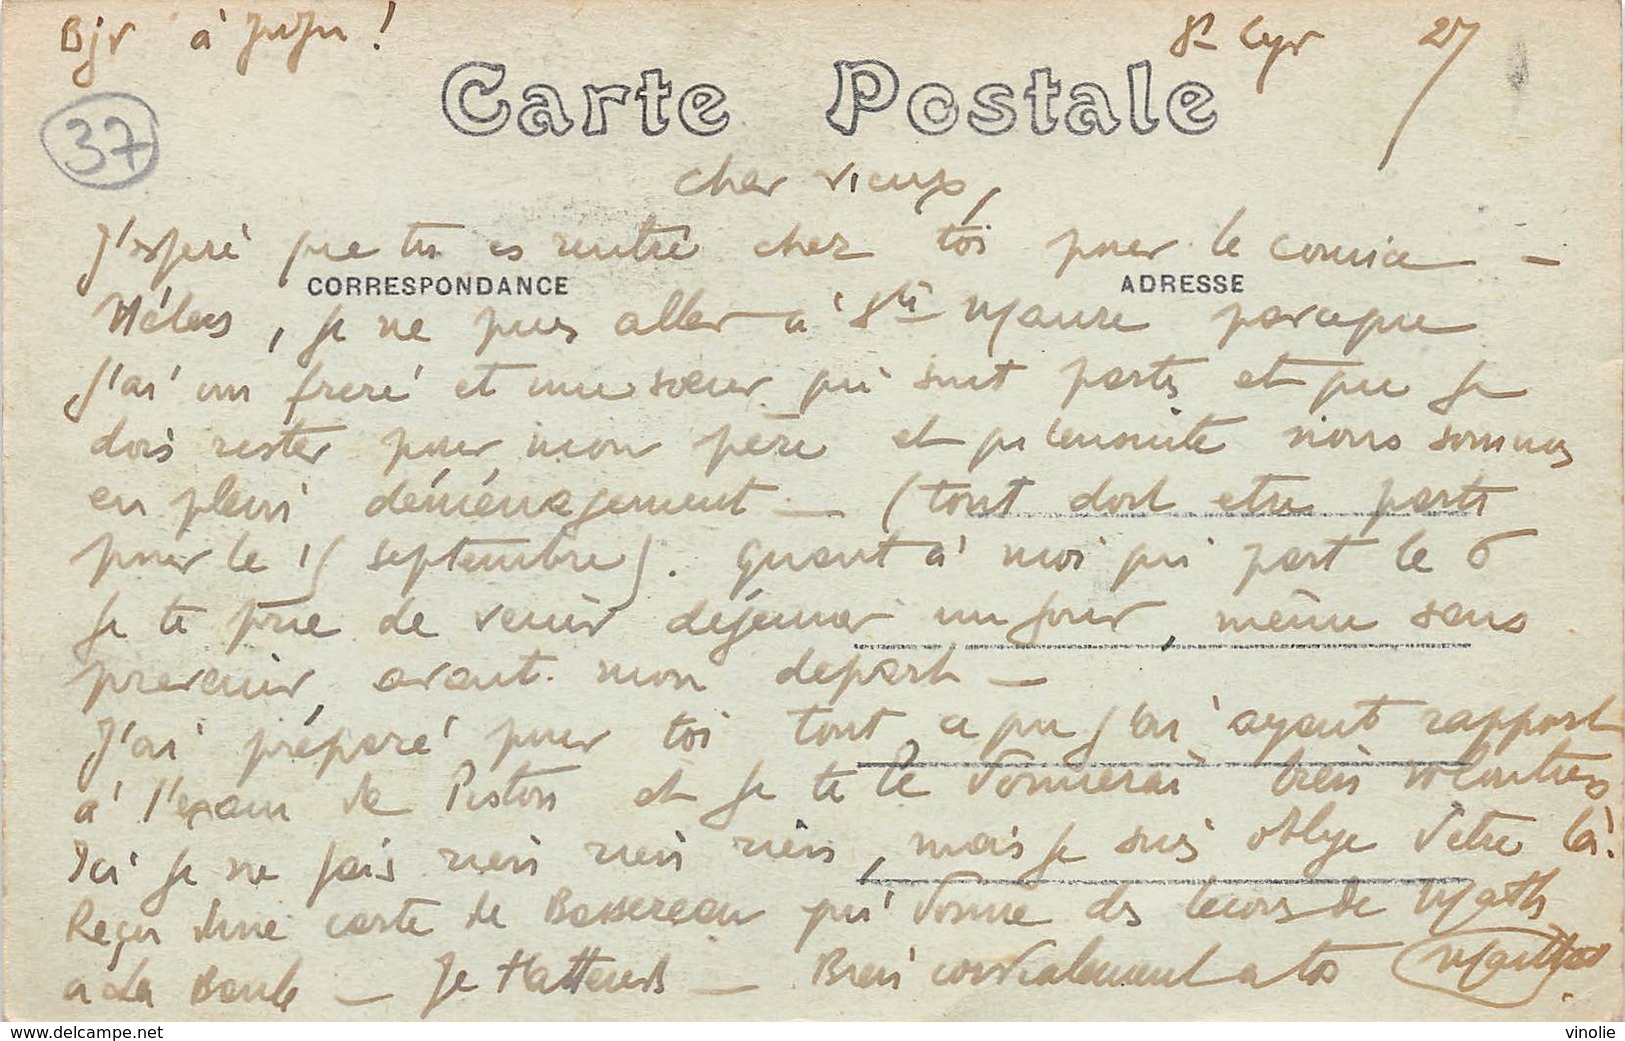 Bjr à JuJu !
St Cyr 27
37
Carte Postale
Cher vieux,
J'espère que tu es rentré chez toi pour le comice –
CORRESPONDANCE
ADRESSE
Hélas, je ne puis aller à Ste Maure parceque
J'ai un frère et une soeur qui sont partis et que je
dois rester pour mon père et qu'ensuite nous sommes
en plein déménagement – (tout doit etre parti
pour le 15 septembre). Quant à moi qui part le 6
Je te prie de venir déjeuner un jour, même sans
prevenir, avant mon depart –
J'ai préparé pour toi tout ce que j'ai ayant rapport
à l'exam de Piston et je te le donnerai bien volontiers
Ici je ne fais rien rien rien, mais je suis obligé d'etre là !
Reçu d'une carte de qui donne des lecons de Math
a La Baule – Je t'attends – Bien cordialement a toi
delcampe.net
vinolie